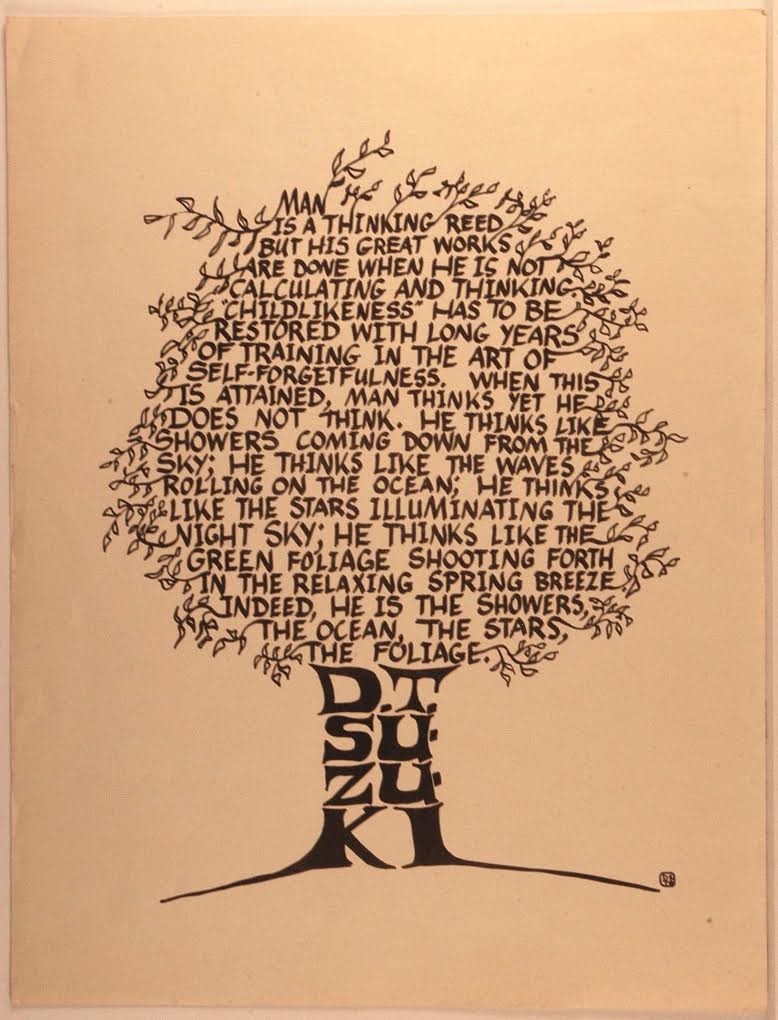 MAN
IS A THINKING REED
BUT HIS GREAT WORKS
ARE DONE WHEN HE IS NOT
CALCULATING AND THINKING.
"CHILDLIKENESS" HAS TO BE
RESTORED WITH LONG YEARS
OF TRAINING IN THE ART OF
SELF-FORGETFULNESS. WHEN THIS
IS ATTAINED, MAN THINKS YET HE
DOES NOT THINK. HE THINKS LIKE
SHOWERS COMING DOWN FROM THE
SKY; HE THINKS LIKE THE WAVES
ROLLING ON THE OCEAN; HE THINKS
LIKE THE STARS ILLUMINATING THE
NIGHT SKY; HE THINKS LIKE THE
GREEN FOLIAGE SHOOTING FORTH
IN THE RELAXING SPRING BREEZE.
INDEED, HE IS THE SHOWERS,
THE OCEAN, THE STARS,
THE FOLIAGE.
D.T.
SU-
ZU-
KI